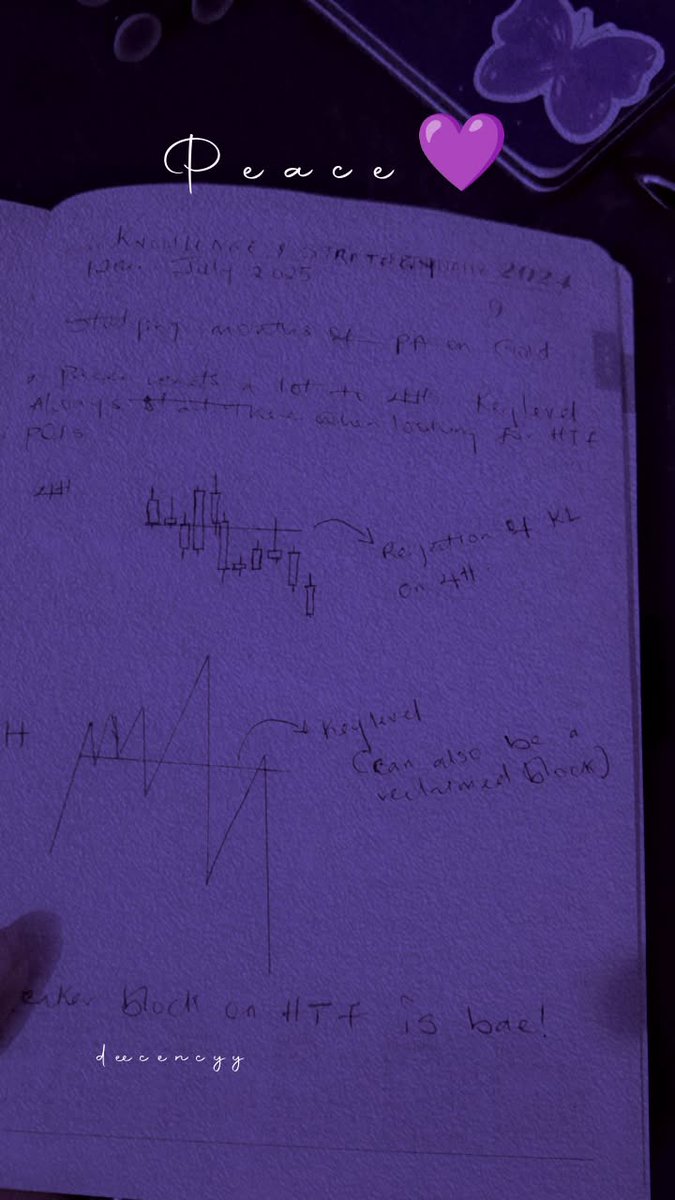 Peace 💜
KNOWLEDGE & 2024
July 2025
Studying months of PA on Gold
a lot to 4H Keylevel
Always start when looking for HTF
POIs
4H
Rejection of KL
on 4H
H
Keylevel
(can also be a
reclaimed block)
block on HTF is bae!
deecencyy